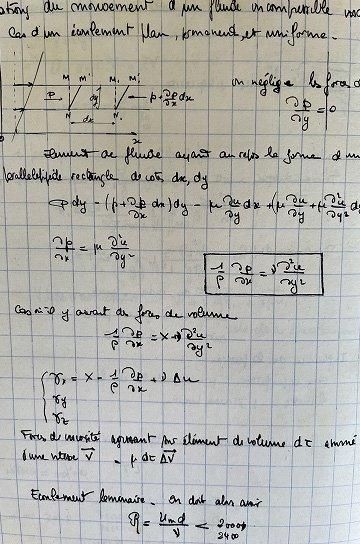 du mouvement d'un fluide incompressible
Cas d'un écoulement plan, permanent, et uniforme.
M M' M₁ M'
p dy p + ∂p/∂x dx
N N
dx x
on néglige les forces d
∂p/∂y = 0
Element de fluide ayant au repos la forme d'un
parallélépipède rectangle de cotés dx, dy
p dy - (p + ∂p/∂x dx) dy - μ ∂u/∂y dx + (μ ∂u/∂y + μ ∂²u/∂y² d
∂p/∂x = μ ∂²u/∂y²
1/ρ ∂p/∂x = ν ∂²u/∂y²
Cas où il y aurait des forces de volume
1/ρ ∂p/∂x = X + ν ∂²u/∂y²
γx = X - 1/ρ ∂p/∂x + ν Δu
γy
γz
Forces de viscosité agissant sur élément de volume dτ animé
d'une vitesse V⃗ = μ dτ ΔV⃗
Ecoulement laminaire. On doit alors avoir
R = Um d/ν < 2000
2400